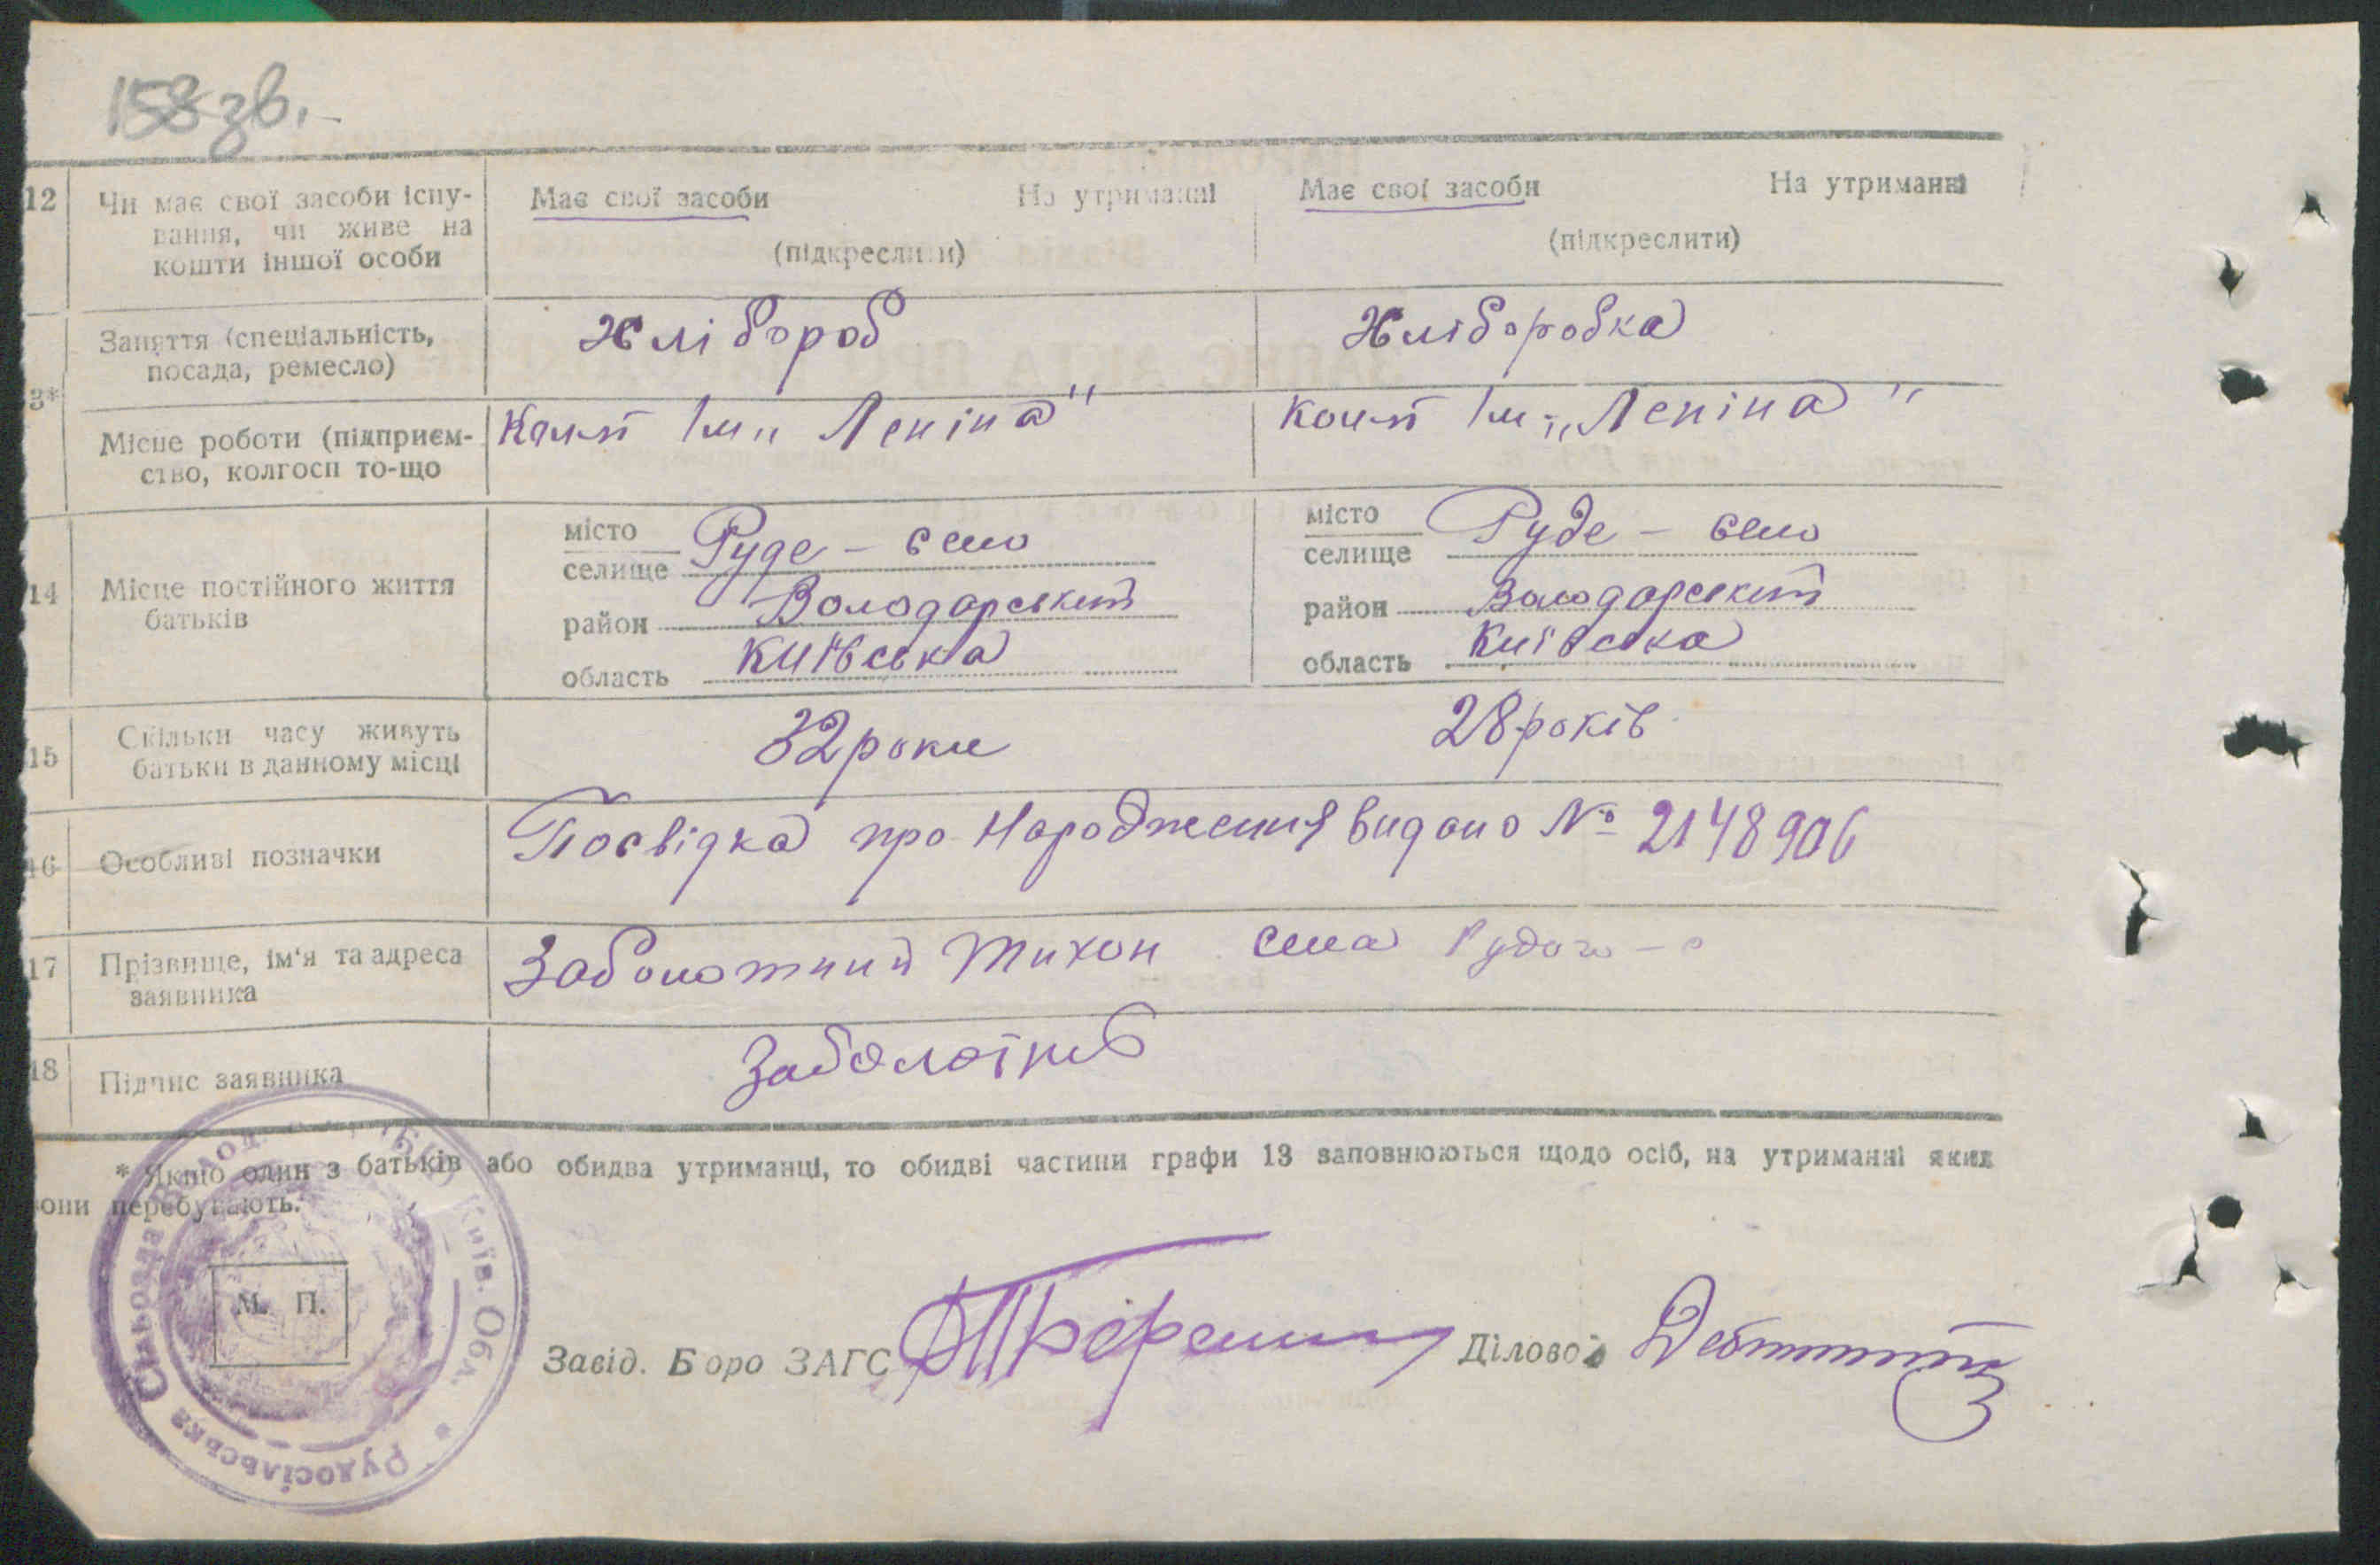 158зв.
12 Чи має свої засоби існу-
вання, чи живе на
кошти іншої особи
Має свої засоби На утриманні
(підкреслити)
Має свої засоби На утриманні
(підкреслити)
3*
Заняття (спеціальність,
посада, ремесло)
Хлібороб
Хліборобка
Місце роботи (підприєм-
ство, колгосп то-що
Колгосп Ім „Леніна"
Колгосп Ім. „Леніна"
14 Місце постійного життя
батьків
місто
селище Руде - село
район Володарський
область Київська
місто
селище Руде - село
район Володарський
область Київська
15 Скільки часу живуть
батьки в данному місці
32 роки
28 років
16 Особливі позначки
Посвідка про Народження видано № 2148906
17 Прізвище, ім'я та адреса
заявника
Заболотний Тихон села Рудого - с
18 Підпис заявника
Заболотний
* Якщо один з батьків або обидва утриманці, то обидві частини графи 13 заповнюються щодо осіб, на утриманні яких
вони перебувають.
М. П.
Рудосільська Сільрада Київ. Обл.
Завід. Бюро ЗАГС
Діловод